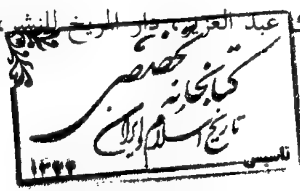 عبد العزيز، دار المريخ للنشر،
كتابخانه تخصصى
تاريخ اسلام و ايران
تاسيس ١٣٧٤